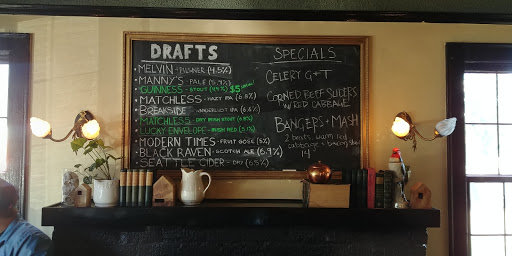 DRAFTS
MELVIN - PILSNER (4.5%)
MANNY'S - PALE (5.4%)
GUINNESS - STOUT (4.4%) $5
MATCHLESS - HAZY IPA
BREAKSIDE - IPA
MATCHLESS - DRY IRISH STOUT
LUCKY ENVELOPE - IRISH RED (5.1%)
MODERN TIMES - FRUIT GOSE (5%)
BLACK RAVEN - SCOTCH ALE (6.9%)
SEATTLE CIDER - DRY (6.5%)
SPECIALS
CELERY G + T
CORNED BEEF SLIDERS
W/ RED CABBAGE
BANGERS + MASH
2 brats, warm red
cabbage + bacon
14